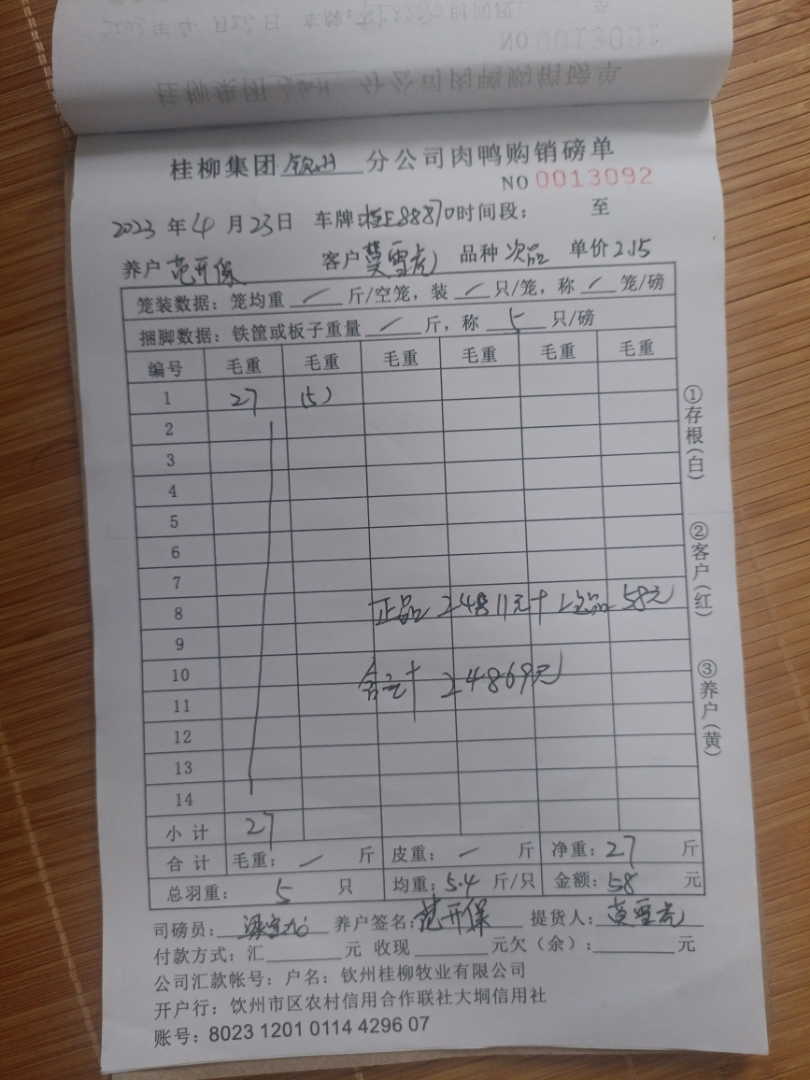 桂柳集团钦州分公司肉鸭购销磅单
NO 0013092
2023年4月23日 车牌:桂E88870时间段: 至
养户 范开保 客户 莫雪虎 品种 次品 单价 2.15
笼装数据: 笼均重 / 斤/空笼, 装 / 只/笼, 称 / 笼/磅
捆脚数据: 铁筐或板子重量 / 斤, 称 5 只/磅
编号 毛重 毛重 毛重 毛重 毛重 毛重
1 27 (5)
2
3
4
5
6
7
8 正品 24811元+次品 58元
9
10 合计 24869元
11
12
13
14
小计 27
合计 毛重: / 斤 皮重: / 斤 净重: 27 斤
总羽重: 5 只 均重: 5.4 斤/只 金额: 58 元
司磅员: 养户签名: 范开保 提货人: 莫雪虎
付款方式: 汇 元 收现 元欠(余): 元
公司汇款帐号: 户名: 钦州桂柳牧业有限公司
开户行: 钦州市区农村信用合作联社大垌信用社
账号: 8023 1201 0114 4296 07
①存根(白)
②客户(红)
③养户(黄)